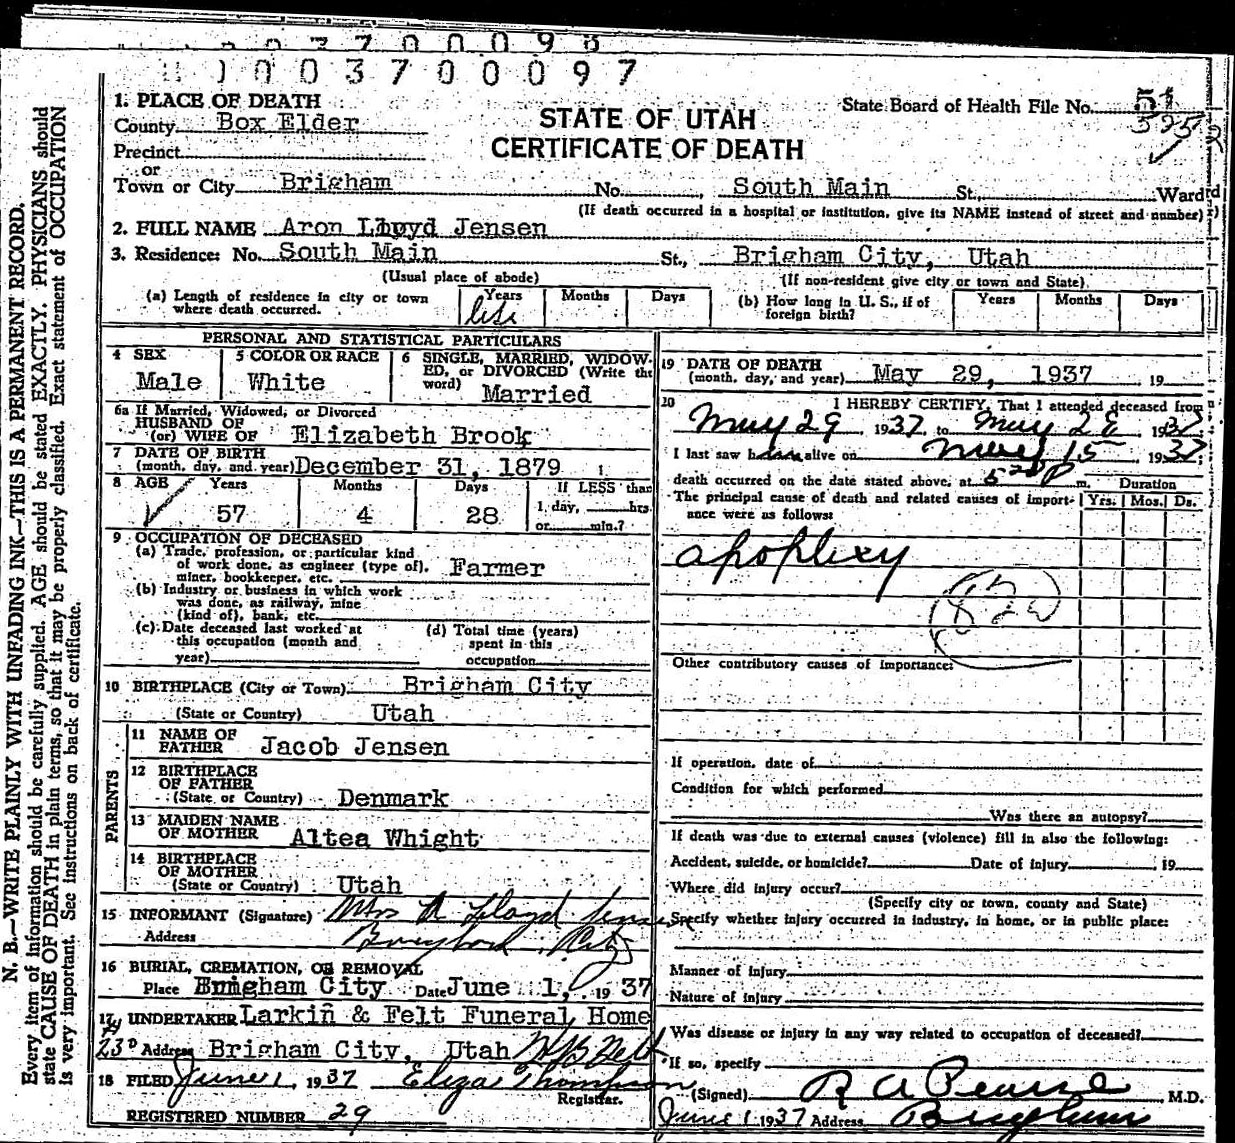 1 0 0 3 7 0 0 0 9 7
1. PLACE OF DEATH
County Box Elder
STATE OF UTAH
CERTIFICATE OF DEATH
State Board of Health File No. 51
525
Precinct
or
Town or City Brigham No. South Main St. Ward
(If death occurred in a hospital or institution, give its NAME instead of street and number)
2. FULL NAME Aron Lloyd Jensen
3. Residence: No. South Main St., Brigham City, Utah
(Usual place of abode) (If non-resident give city or town and State)
(a) Length of residence in city or town where death occurred. Years life Months Days (b) How long in U. S., if of foreign birth? Years Months Days
PERSONAL AND STATISTICAL PARTICULARS
4 SEX Male
5 COLOR OR RACE White
6 SINGLE, MARRIED, WIDOW-
ED, or DIVORCED (Write the
word) Married
6a If Married, Widowed, or Divorced
HUSBAND OF
(or) WIFE OF Elizabeth Brook
7 DATE OF BIRTH
(month, day, and year) December 31, 1879
8 AGE Years Months Days If LESS than
57 4 28 1 day, hrs.
or min.?
9 OCCUPATION OF DECEASED
(a) Trade, profession, or particular kind
of work done, as engineer (type of), Farmer
miner, bookkeeper, etc.
(b) Industry or business in which work
was done, as railway, mine
(kind of), bank, etc.
(c) Date deceased last worked at
this occupation (month and
year)
(d) Total time (years)
spent in this
occupation
10 BIRTHPLACE (City or Town) Brigham City
(State or Country) Utah
PARENTS
11 NAME OF
FATHER Jacob Jensen
12 BIRTHPLACE
OF FATHER
(State or Country) Denmark
13 MAIDEN NAME
OF MOTHER Altea Whight
14 BIRTHPLACE
OF MOTHER
(State or Country) Utah
15 INFORMANT (Signature) Mrs A Lloyd Jensen
Address Brigham City
16 BURIAL, CREMATION, OR REMOVAL
Place Brigham City Date June 1, 19 37
17 UNDERTAKER Larkin & Felt Funeral Home
Address Brigham City, Utah
18 FILED June 1, 1937 Eliza Thompson
Registrar.
REGISTERED NUMBER 29
19 DATE OF DEATH
(month, day, and year) May 29, 1937 19
20 I HEREBY CERTIFY, That I attended deceased from
May 29, 1937 to May 28 1937
I last saw him alive on May 15 1937
death occurred on the date stated above, at 5 20 p m. Duration
The principal cause of death and related causes of import- Yrs. Mos. Ds.
ance were as follows:
apoplexy
82a
Other contributory causes of importance:
If operation, date of
Condition for which performed
Was there an autopsy?
If death was due to external causes (violence) fill in also the following:
Accident, suicide, or homicide? Date of injury 19
Where did injury occur?
(Specify city or town, county and State)
Specify whether injury occurred in industry, in home, or in public place:
Manner of injury
Nature of injury
Was disease or injury in any way related to occupation of deceased?
If so, specify
(Signed) R A Pearse, M.D.
June 1 1937 Address Brigham
N. B.—WRITE PLAINLY WITH UNFADING INK—THIS IS A PERMANENT RECORD.
Every item of information should be carefully supplied. AGE should be stated EXACTLY. PHYSICIANS should
state CAUSE OF DEATH in plain terms, so that it may be properly classified. Exact statement of OCCUPATION
is very important. See instructions on back of certificate.